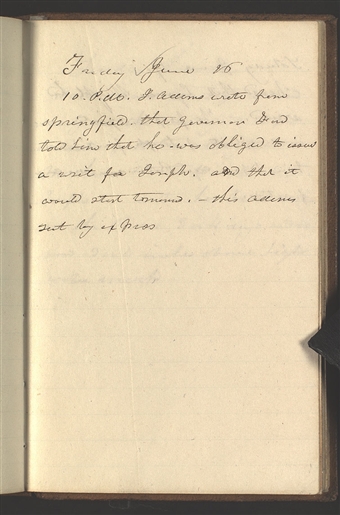 Friday June 16
10. P.M. J. Adams wrote from
springfield. that Governor Ford
told him that he was obliged to issue
a writ for Joseph. and that it
would start tomorrow. - this adams
sent by express